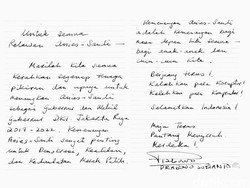 Untuk semua
Relawan Anies-Sandi -
Marilah kita semua
kerahkan segenap tenaga
pikiran dan upaya untuk
menangkan Anies-Sandi
sebagai gubernur dan Wakil
gubernur DKI. Jakarta Raya
2017-2022. Kemenangan
Anies-Sandi sangat penting
untuk Demokrasi, Keadilan,
dan Kedaulatan Merah Putih.
Kemenangan Anies-Sandi
adalah kemenangan bagi
bagi anak-anak dan
cucu-cucu kita.
Berjuang terus!
Kalahkan para Koruptor!
Kalahkan para
Selamatkan Indonesia!
Maju Terus
Pantang Menyerah
Merdeka!
Prabowo
PRABOWO SUBIANTO